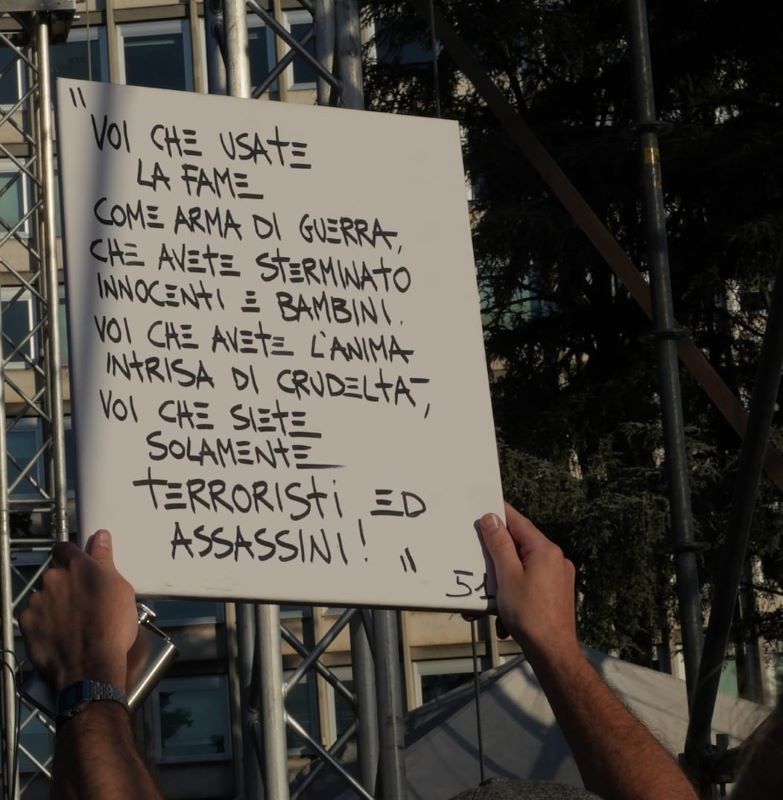 "VOI CHE USATE
LA FAME
COME ARMA DI GUERRA,
CHE AVETE STERMINATO
INNOCENTI E BAMBINI.
VOI CHE AVETE L'ANIMA
INTRISA DI CRUDELTA',
VOI CHE SIETE
SOLAMENTE
TERRORISTI ED
ASSASSINI! "
51